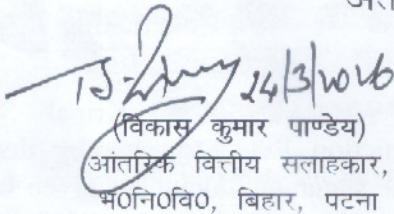 24/3/2026
(विकास कुमार पाण्डेय)
आंतरिक वित्तीय सलाहकार,
भ०नि०वि०, बिहार, पटना